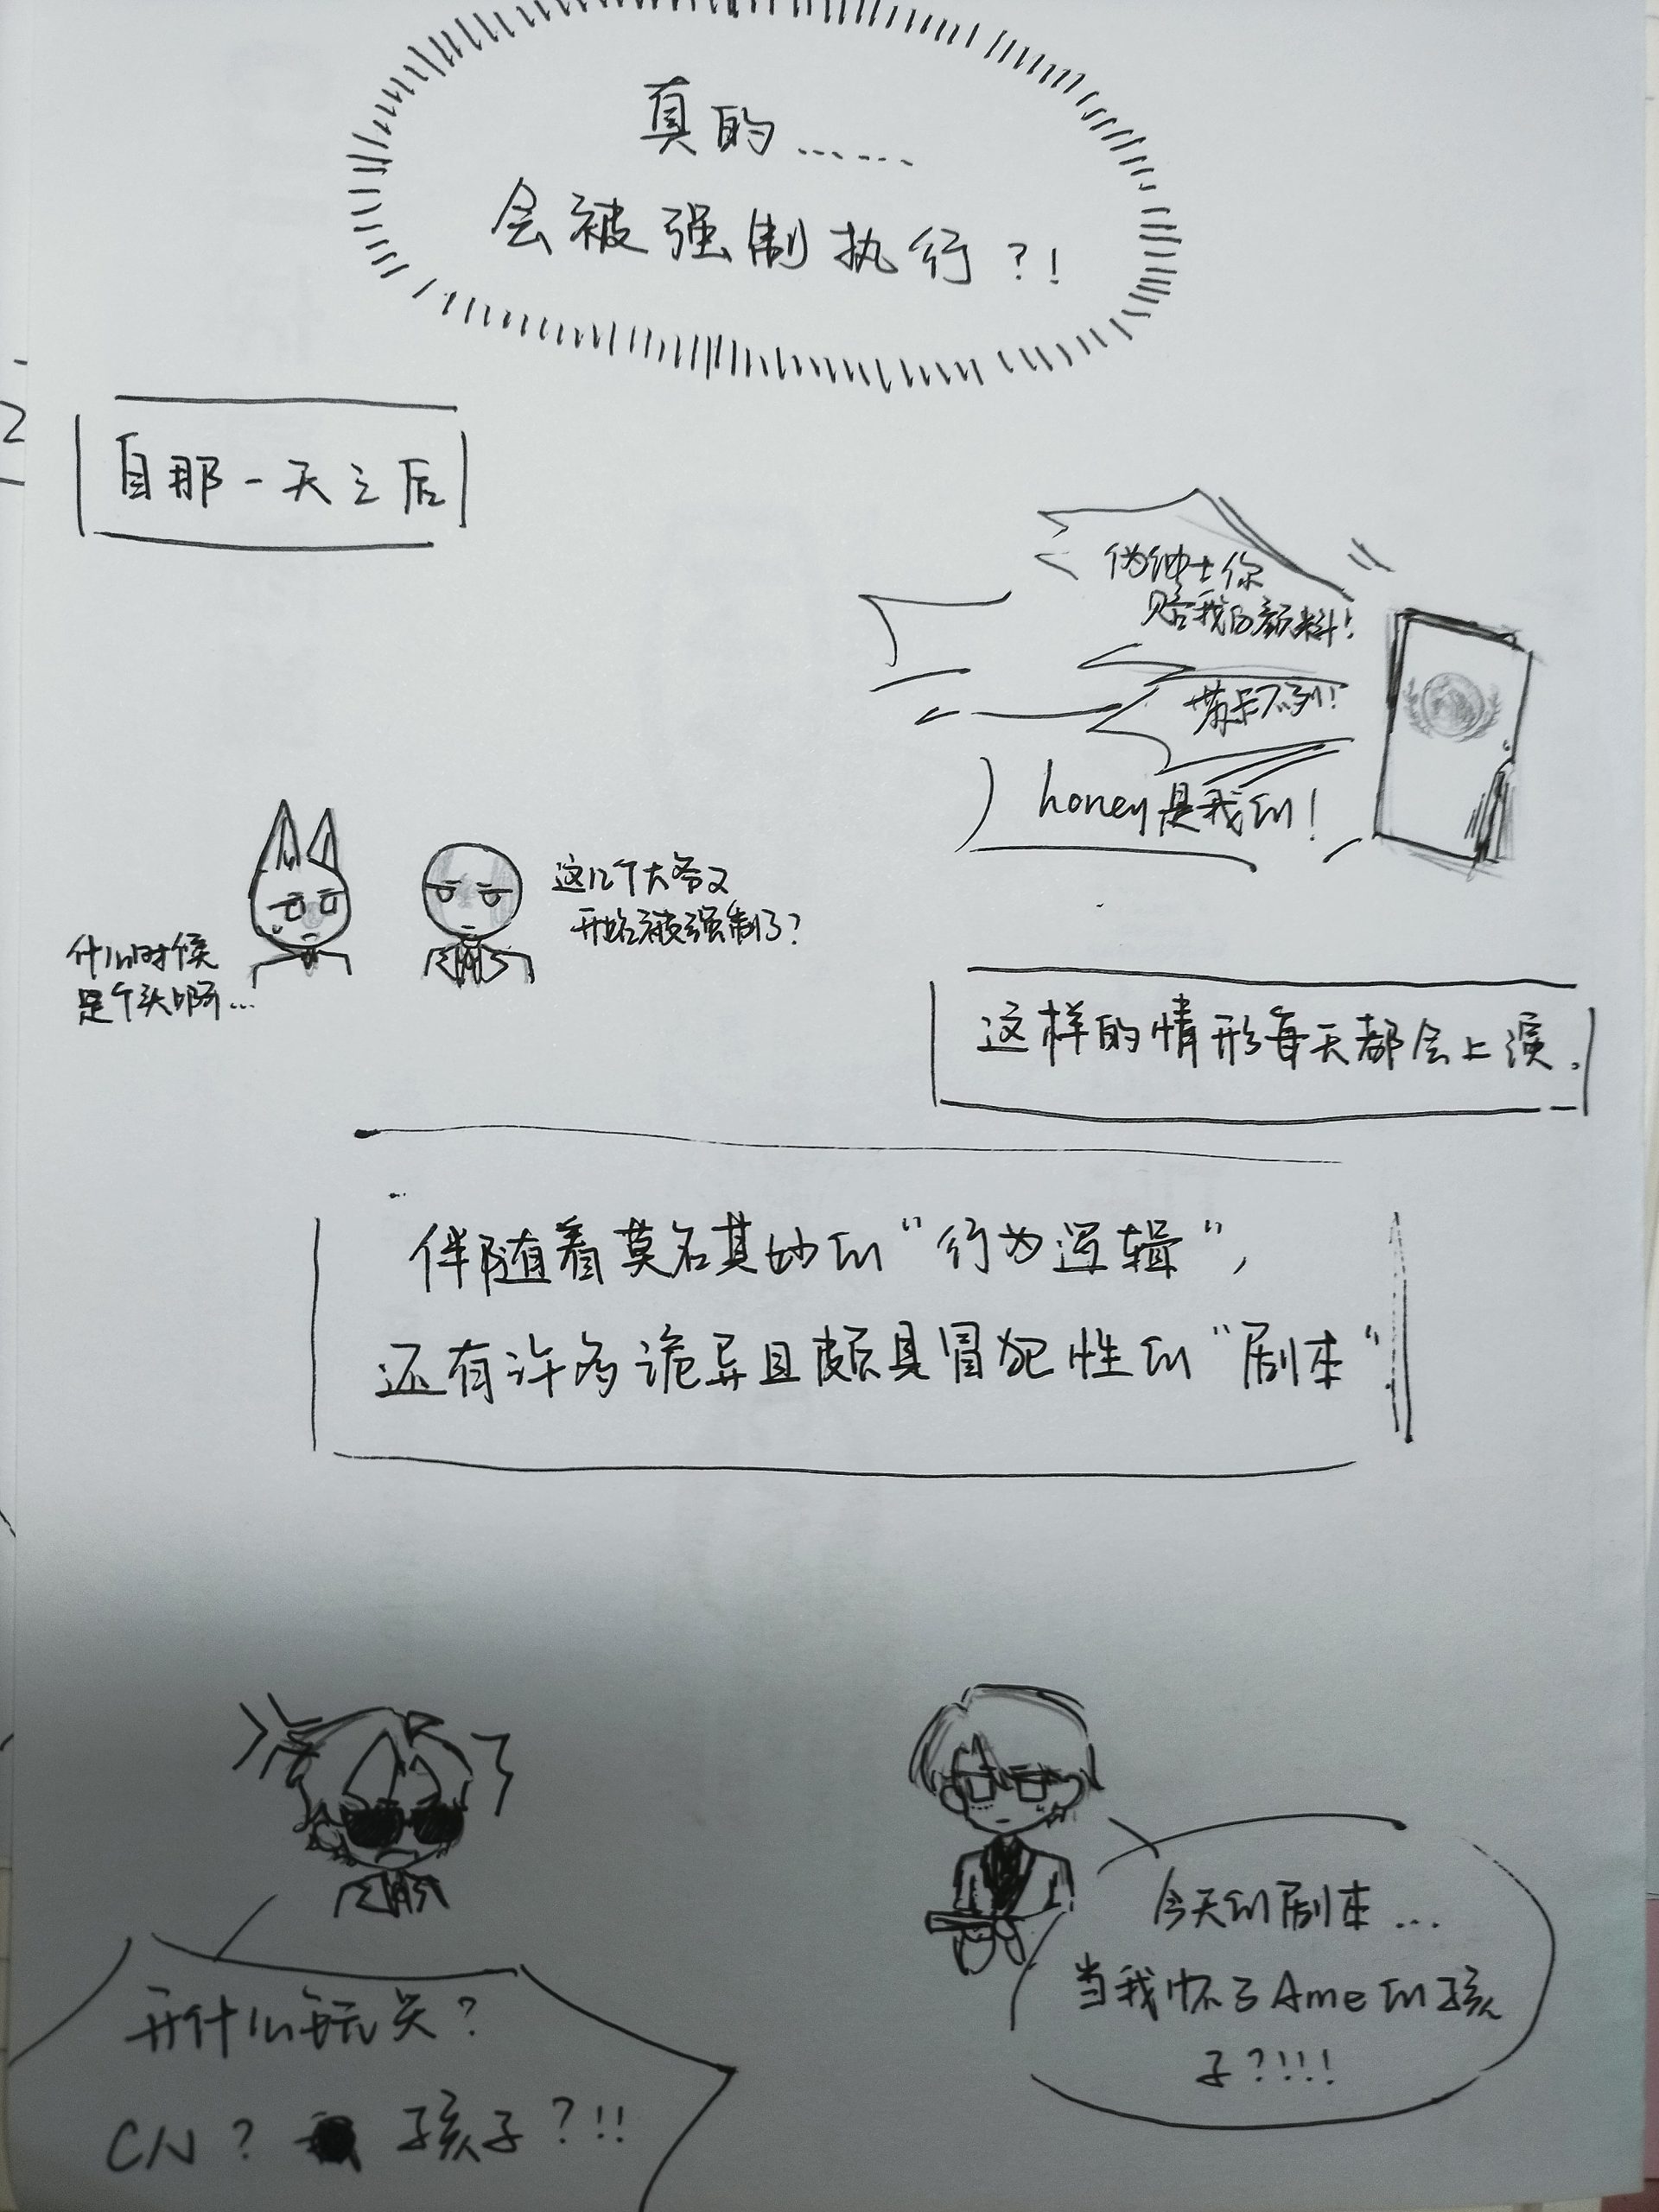 真的……
会被强制执行?!
2
自那一天之后
伪绅士你
赔我的颜料!
honey是我的!
这几个大爷又
开始被强制了?
什么时候
是个头啊…
这样的情形每天都会上演。
伴随着莫名其妙的“行为逻辑”,
还有许多诡异且颇具冒犯性的“剧本”
今天的剧本…
当我怀了Ame的孩
子?!!!
开什么玩笑?
CN? 孩子?!!